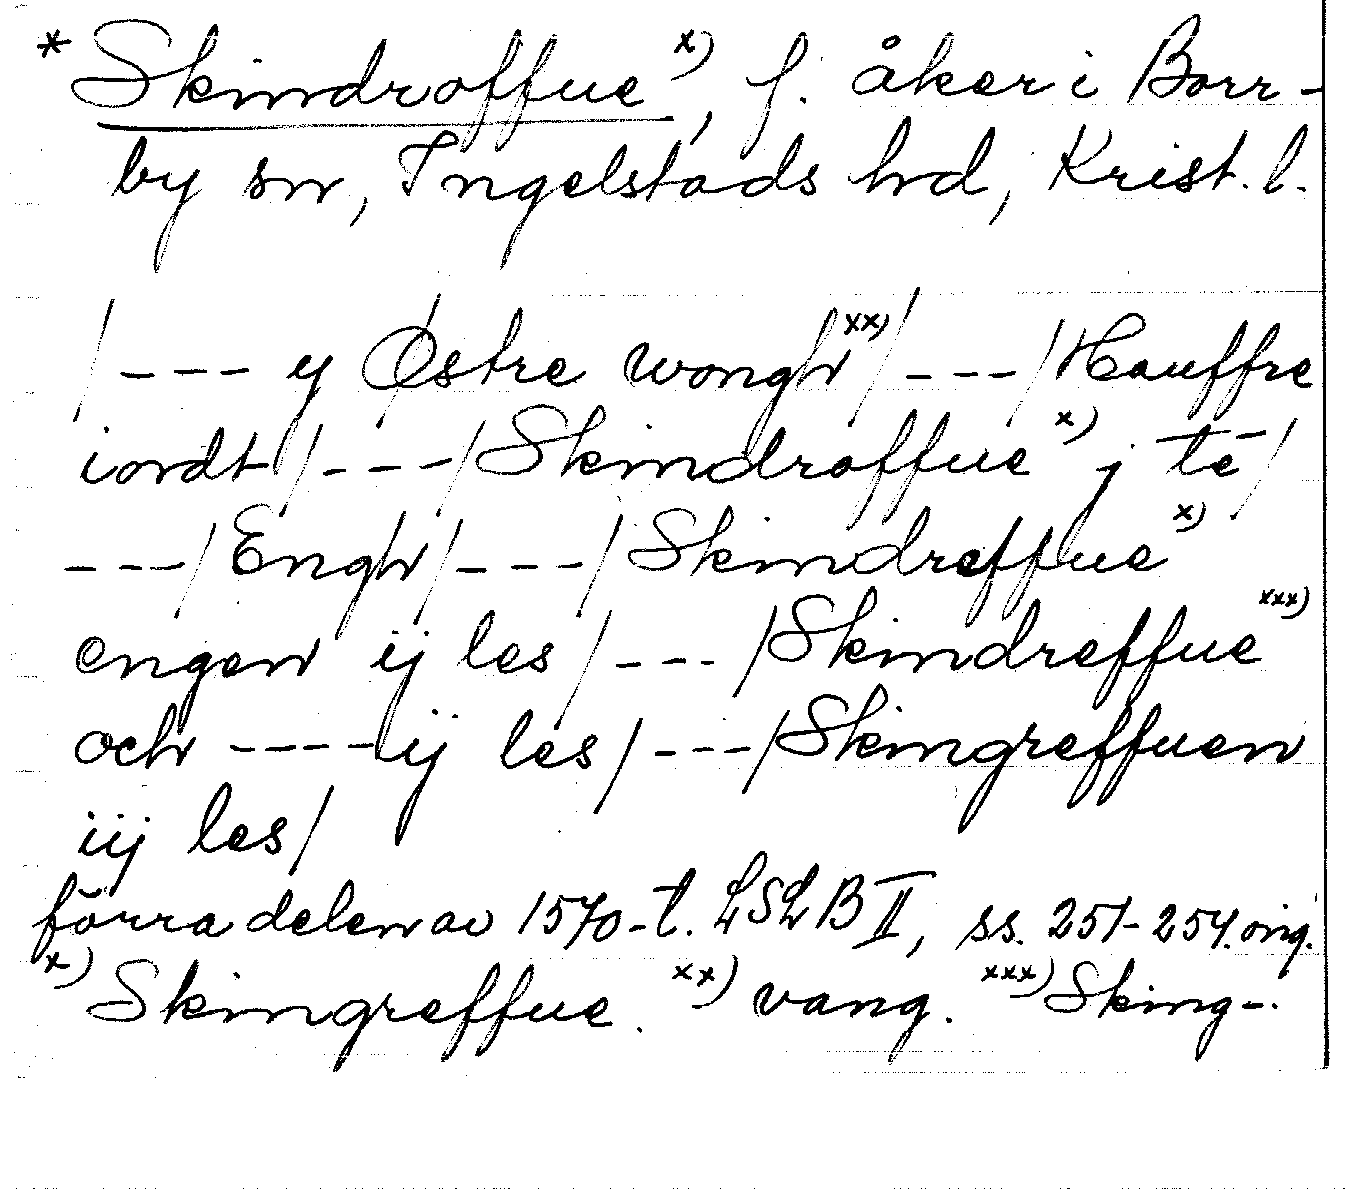 * Skindroffue x), f. åker i Borr-
by sn, Ingelstads hd, Krist. l.
/--- y Østre wongh xx)/---/Hauffre
iordt/---/Skindroffue x) j te/
---/Engh/---/Skindreffue x)
engen ij les/---/Skindreffue xxx)
och ----ij les/---/Skingreffuen
iij les/
förra delen av 1570-t. LSLB II, ss. 251-254. orig.
x) Skingreffue. xx) vang. xxx) Sking-.